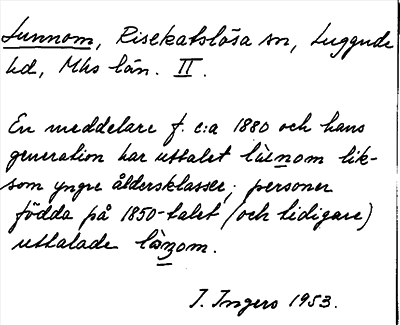 Lunnom, Risekatslösa sn, Luggude
hd, Mhs län. II.
En meddelare f. c:a 1880 och hans
generation har uttalet lùnom lik-
som yngre åldersklasser; personer
födda på 1850-talet (och tidigare)
uttalade
I. Ingers 1953.